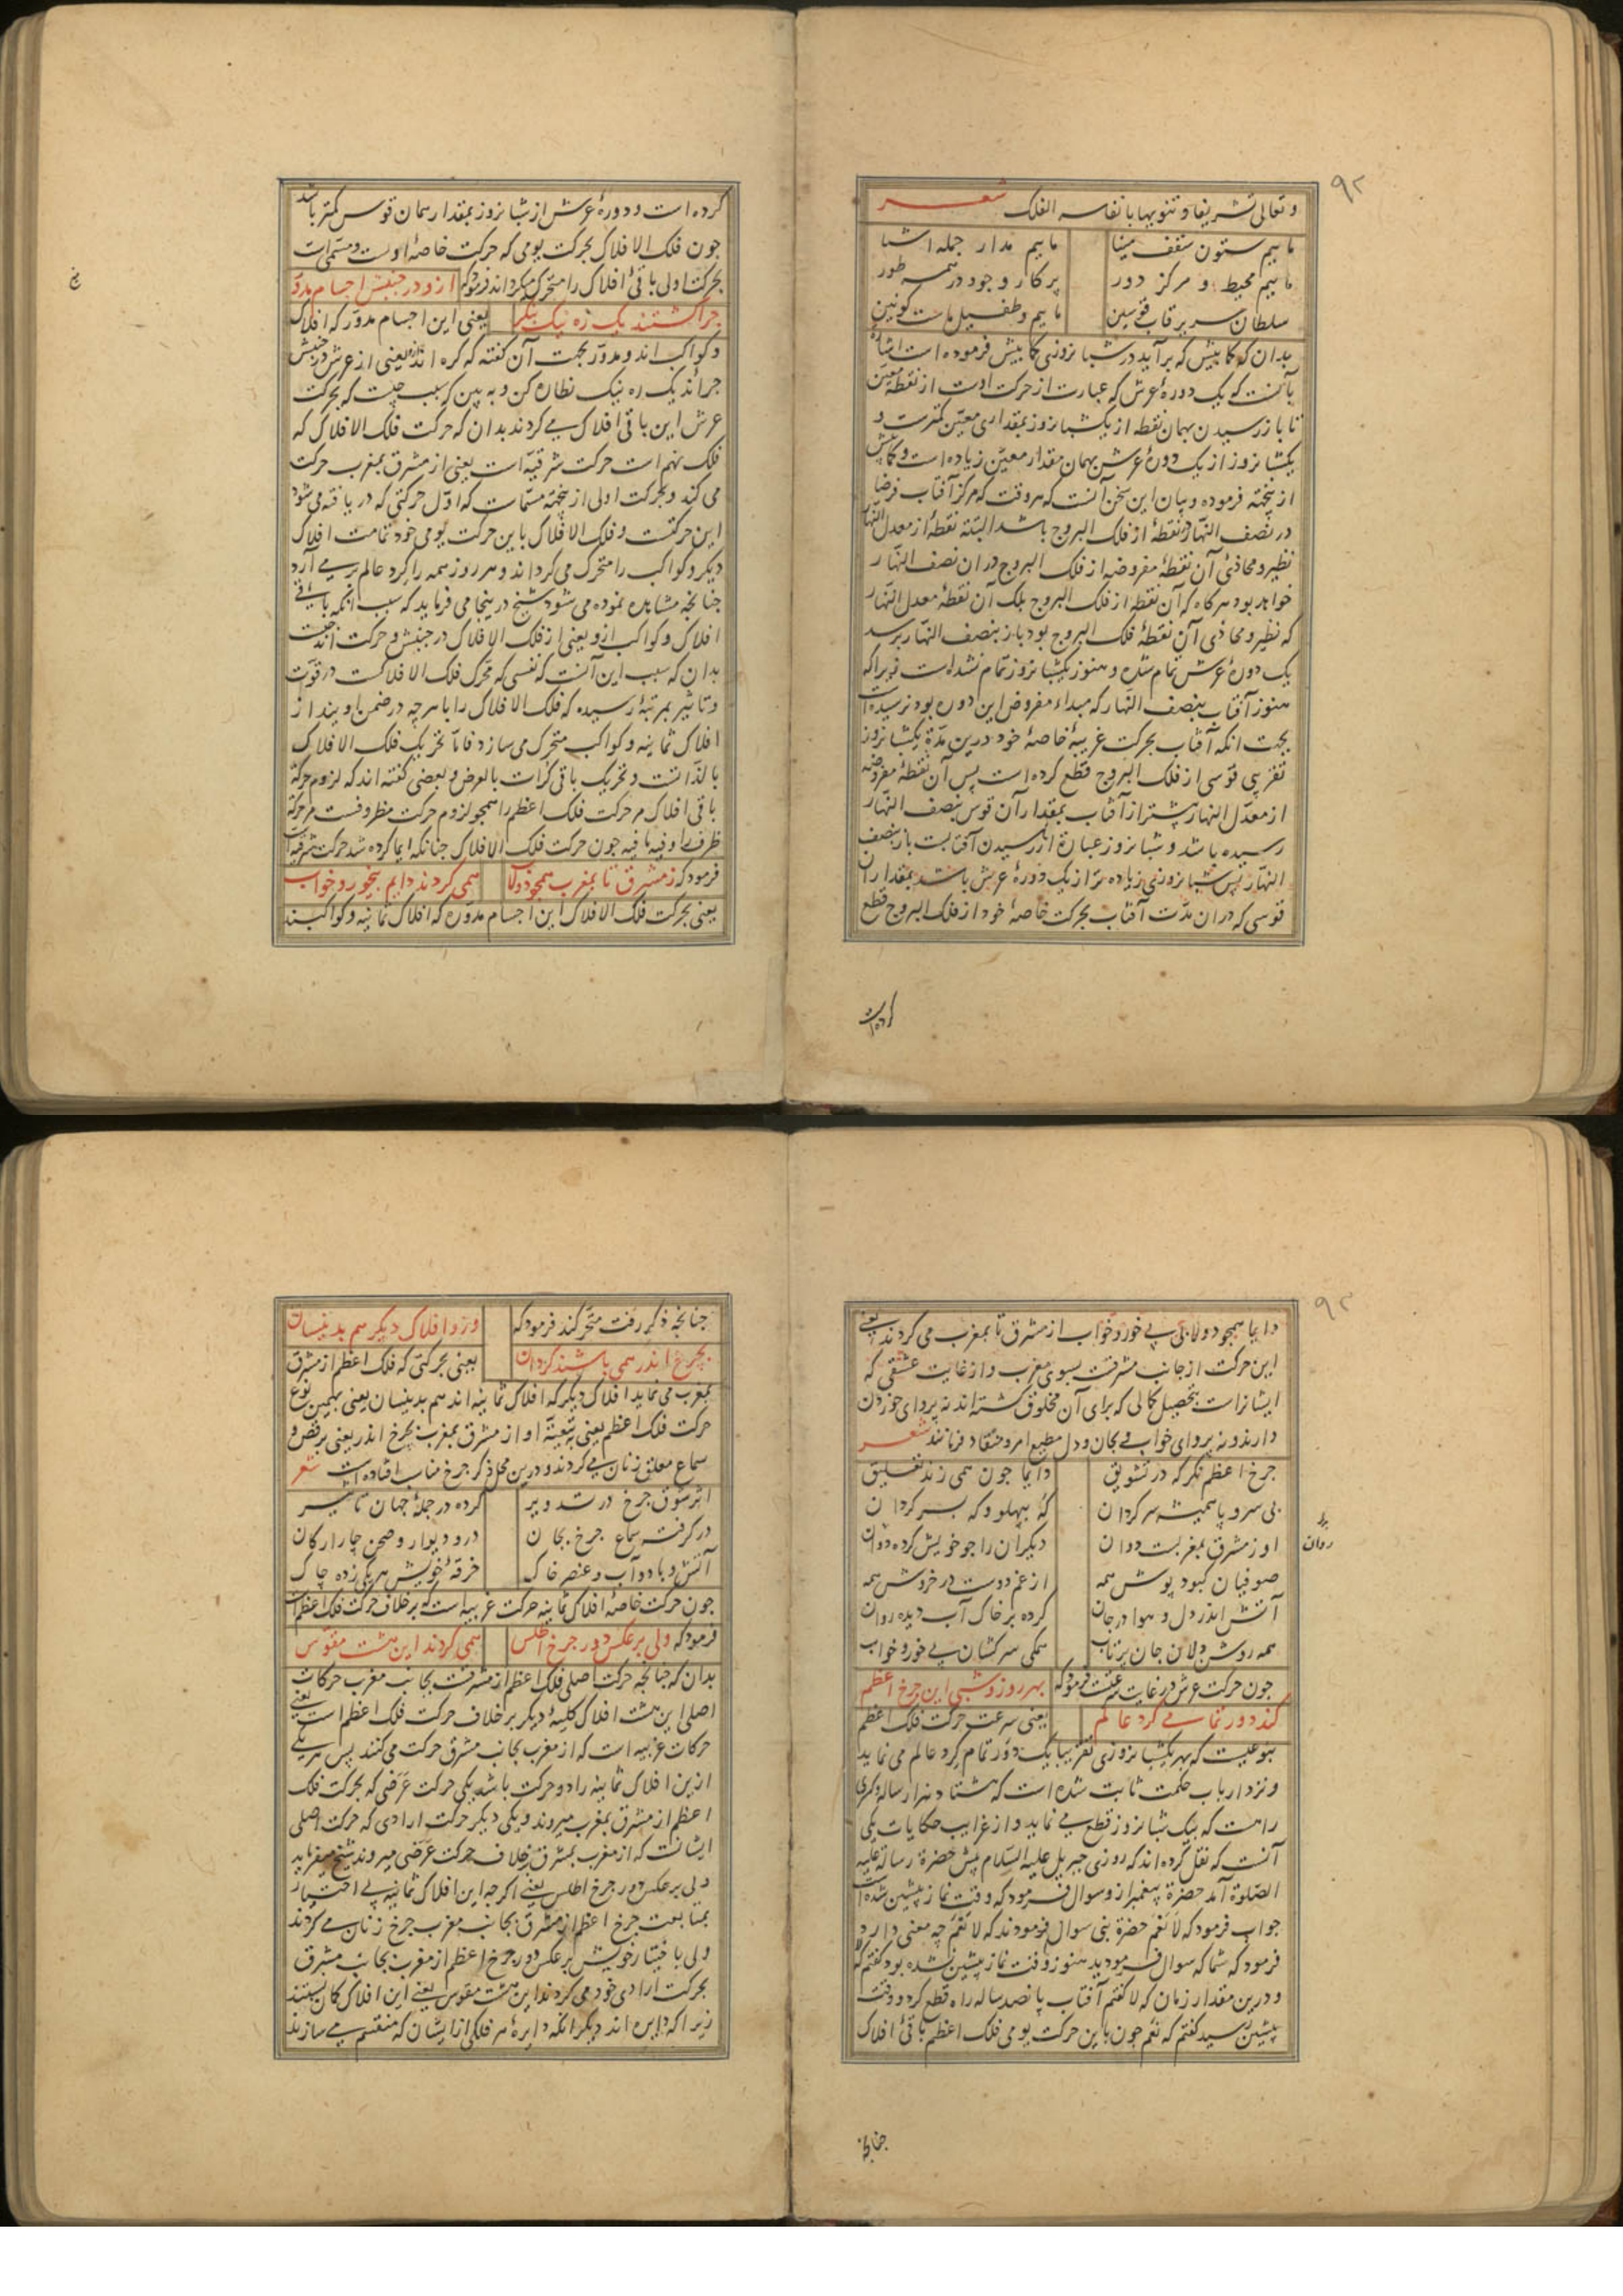 ۹۲
و تعالی تشریفا و تنویها بانفاسه الفلک شعر
ماییم ستون سقف مینا ماییم مدار جمله اشیا
ماییم محیط و مرکز دور پرکار وجود در همه طور
سلطان سریر قاب قوسین ماییم و طفیل ماست کونین
بدان که کما بیش که برآید در شبانروزی کما بیش فرموده است اشاره
بآنست که یک دوره عرش که عبارت از حرکت اوست از نقطه معین
تا باز رسیدن بهمان نقطه از یکشبانروز بمقداری معین کمترست و
یکشبانروز از یک دوره عرش بهمان مقدار معین زیاده است و کما بیش
ازینجهة فرموده و بیان این سخن آنست که هر وقت که مرکز آفتاب فرضا
در نصف النهار و نقطه از فلک البروج باشد البته نقطه از معدل النهار
نظیر و محاذی آن نقطه مفروضه از فلک البروج در ان نصف النهار
خواهد بود هرکاه که آن نقطه از فلک البروج بلک آن نقطه معدل النهار
که نظیر و محاذی آن نقطه فلک البروج بود باز بنصف النهار برسد
یک دوره عرش تمام شده و هنوز یکشبانروز تمام نشده است زیرا که
هنوز آفتاب بنصف النهار که مبداء مفروض این دوره بود نرسیده است
بجهت انکه آفتاب بحرکت غربیه خاصه خود درین مدة یکشبانروز
تقریبی قوسی از فلک البروج قطع کرده است پس آن نقطه مفروضه
از معدل النهار پیشتر از آفتاب بمقدار آن قوس بنصف النهار
رسیده باشد و شبانروز عبارة از رسیدن آفتابست باز بنصف
النهار پس شبانروزی زیاده تر از یک دوره عرش باشد بمقدار ان
قوسی که در ان مدت آفتاب بحرکت خاصه خود از فلک البروج قطع
کرده است
کرده است و دوره عرش از شبانروز بمقدار همان قوس کمتر باشد
جون فلک الافلاک بحرکت یومی که حرکت خاصه اوست و مسمی است
بحرکت اولی باقی افلاک را متحرک میکرداند فرمود که ازو در جنبش اجسام مدور
جرا کشتند یک ره نیک بنکر یعنی این اجسام مدور که افلاک
و کواکب اند و مدور بجهت آن کفته که کره اند ازو یعنی از عرش در جنبش
جرا اند یک ره نیک نظاره کن و به بین که سبب چیست که بحرکت
عرش این باقی افلاک میکردند بدان که حرکت فلک الافلاک که
فلک نهم است حرکت شرقیه است یعنی از مشرق بمغرب حرکت
می کند و بحرکت اولی ازینجهة مسمات که اول حرکتی که دریافته می شود
این حرکتست و فلک الافلاک باین حرکت یومی خود تمامت افلاک
دیکر و کواکب را متحرک می کرداند و هر روز همه را کرد عالم بر می آرد
جنانجه مشاهده نموده می شود شیخ درینجا می فرماید که سبب انکه باقی
افلاک و کواکب ازو یعنی از فلک الافلاک در جنبش و حرکت اند چیست
بدان که سبب این آنست که نفسی که محرک فلک الافلاکست در قوت
و تاثیر بمرتبه رسیده که فلک الافلاک را با هر چه در ضمن اویند از
افلاک ثمانیه و کواکب متحرک می سازد فاما تحریک فلک الافلاک
بالذاتست و تحریک باقی کرات بالعرض و بعضی کفته اند که لزوم حرکة
باقی افلاک مر حرکت فلک اعظم را همجو لزوم حرکت مظروفست مر حرکة
ظرف را و فیه ما فیه جون حرکت فلک الافلاک جنانکه ایما کرده شد حرکت شرقیه است
فرمود که ز مشرق تا بمغرب همجو دولاب همی کردند دایم بیخور و خواب
یعنی بحرکت فلک الافلاک این اجسام مدوره که افلاک ثمانیه و کواکبند
۹۳
دایما همجو دولابی بی خور و خواب از مشرق تا بمغرب می کردند یعنی
این حرکت از جانب مشرقست بسوی مغرب و از غایت عشقی که
ایشانراست بتحصیل کمالی که برای آن مخلوق کشته اند نه پروای خوردن
دارند و نه پروای خواب و بجان و دل مطیع امر و منقاد فرمانند شعر
جرخ اعظم نکر که در تشویق دایما جون همی زند تعلیق
بی سر و پا همیشه سرکردان که بپهلو و که بسر کردان
او ز مشرق بمغربست دوان دیکران را جو خویش کرده دوان
روان
صوفیان کبود پوش همه از غم دوست در خروش همه
آتش اندر دل و هوا در جان کرده بر خاک آب دیده روان
همه روشن دلان جان پرتاب همکی سرکشان بی خور و خواب
جون حرکت عرش در غایت سرعتست فرمود که بهر روز و شبی این جرخ اعظم
کند دور تمامی کرد عالم یعنی سرعت حرکت فلک اعظم
بنوعیست که بهر یکشبانروزی تقریبا یک دور تمام کرد عالم می نماید
و نزد ارباب حکمت ثابت شده است که هشتاد هزار ساله و کسری
راهست که بیک شبانروز قطع می نماید و از غرایب حکایات یکی
آنست که نقل کرده اند که روزی جبریل علیه السلام پیش حضرة رسالة علیه
الصلوة آمد حضرة پیغمبر ازو سوال فرمود که وقت نماز پیشین شده است
جواب فرمود که لا نعم حضرة نبی سوال فرمودند که لا نعم چه معنی دارد
فرمود که شما که سوال فرمودید هنوز وقت نماز پیشین نشده بود کفتم که لا
و درین مقدار زمان که لا کفتم آفتاب پانصد ساله راه قطع کرد و وقت
پیشین رسید کفتم که نعم جون باین حرکت یومی فلک اعظم باقی افلاک
جنانجه
جنانجه ذکر رفت متحرکند فرمود که وزو افلاک دیکر هم بدینسان
بجرخ اندر همی باشند کردان یعنی بحرکتی که فلک اعظم از مشرق
بمغرب می نماید افلاک دیکر که افلاک ثمانیه اند هم بدینسان یعنی بهمین نوع
حرکت فلک اعظم یعنی بتبعیة او از مشرق بمغرب بجرخ اندر یعنی برقص و
سماع معلق زنان می کردند و درین محل ذکر جرخ مناسب افتاده است شعر
اثر شوق جرخ در تدویر کرده در جمله جهان تاثیر
در کرفت سماع جرخ بجان در و دیوار و صحن چار ارکان
آتش و باد و آب و عنصر خاک خرقه خویش هر یکی زده چاک
جون حرکت خاصه افلاک ثمانیه حرکت غربیه است که بر خلاف حرکت فلک اعظم است
فرمود که ولی بر عکس دور جرخ اطلس همی کردند این هشت مقوس
بدان که جنانجه حرکت اصلی فلک اعظم از مشرقست بجانب مغرب حرکات
اصلی این هشت افلاک کلیه دیکر بر خلاف حرکت فلک اعظم است یعنی
حرکات غربیه است که از مغرب بجانب مشرق حرکت می کنند پس هر یکی
ازین افلاک ثمانیه را دو حرکت باشد یکی حرکت عرضی که بحرکت فلک
اعظم از مشرق بمغرب میروند و یکی دیکر حرکت ارادی که حرکت اصلی
ایشانست که از مغرب بمشرق بخلاف حرکت عرضی میروند شیخ میفرماید
ولی بر عکس دور جرخ اطلس یعنی اکرجه این افلاک ثمانیه بی اختیار
بمتابعت جرخ اعظم از مشرق بجانب مغرب جرخ زنان می کردند
ولی باختیار خویش بر عکس دور جرخ اعظم از مغرب بجانب مشرق
بحرکت ارادی خود می کردند این هشت مقوس یعنی این افلاک کمان بستند
زیرا که دایره اند دیکر انکه دایره هر فلکی از ایشان که منقسم می سازند